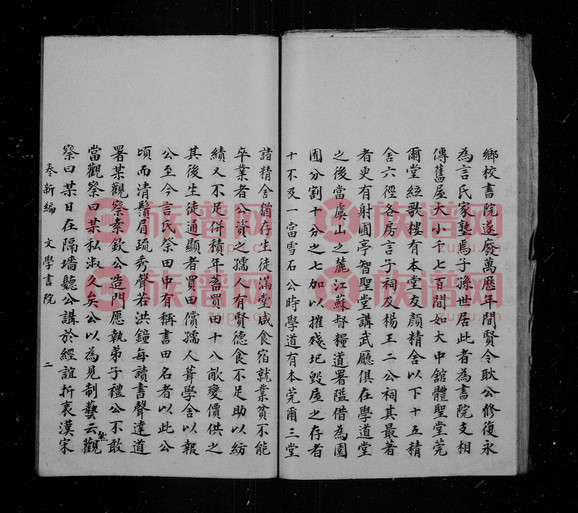 鄉校書院遂廢萬歷年間賢令耿公修復永
為言氏家塾焉子孫世居此者為書院支相
傳舊屋大小千七百間如大中館體聖堂莞
爾堂絃歌樓有本堂友顏精舍以下十五精
舍六經各房言子祠及楊王二公祠其最著
者更有射圃亭智聖堂講武廳俱在學道堂
之後當虞山之麓江蘇督糧道署隘借為園
囿分割十分之七加以摧殘圮毀屋之存者
十不及一當雪石公時學道有本莞爾三堂
諸精舍猶存生徒滿堂咸食宿就業貧不能
卒業者公資之孺人有賢德食不足助以紡
績又不足併積年蓄買田十八畝變價供之
其後生徒通顯者買田償孺人葺學舍以報
公至今言氏祭田中有稱書田名者以此公
頎而清鬚眉疏秀聲若洪鐘每讀書聲達道
署某觀察素欽公造門愿執弟子禮公不敢
當觀察曰某私淑久矣公以為見制藝云觀
察曰某日在隔墻聽公講於經誼折衷漢宋
奉新編 文學書院 二
族譜网